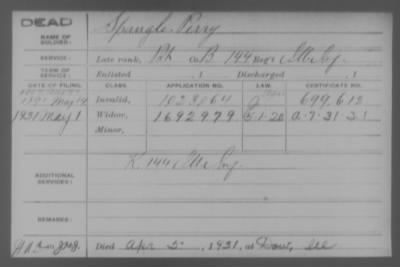 DEAD
NAME OF SOLDIER: Spangle, Perry
SERVICE: Late rank, Pvt Co. B, 144 Reg't Ills Inf.
TERM OF SERVICE: Enlisted , 1 Discharged , 1
DATE OF FILING. CLASS. APPLICATION NO. LAW. CERTIFICATE NO.
1891 May 14 Invalid, 1023064 699,612
1921 May 1 Widow, 1692979 5-1-20 a.7-31-21
Minor,
ADDITIONAL SERVICES: K. 144 Ills Inf.
REMARKS:
Died Apr 5, 1921, at Dow, Ill